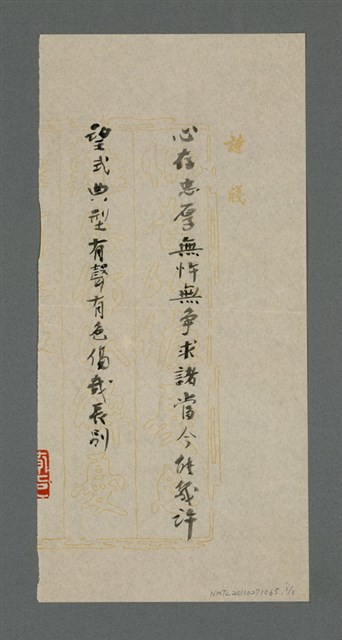 詩箋
心存忠厚無忤無爭求諸當今能幾許
望式典型有聲有色傷哉長別
NMTL20110271065